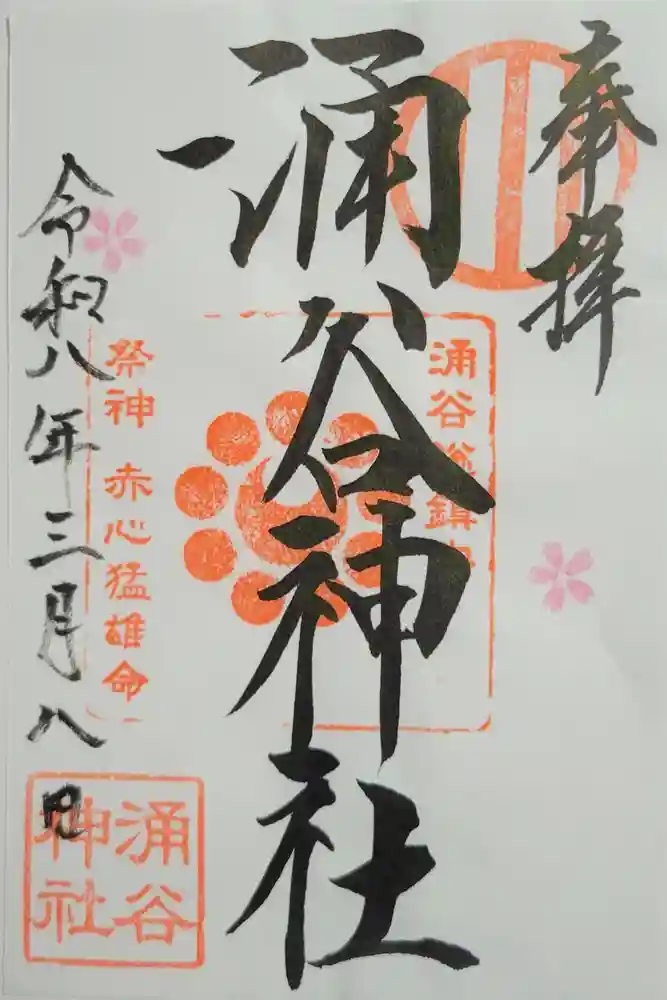 奉拝
涌谷神社
涌谷総鎮守
祭神 赤心猛雄命
令和八年三月八日
涌谷
神社